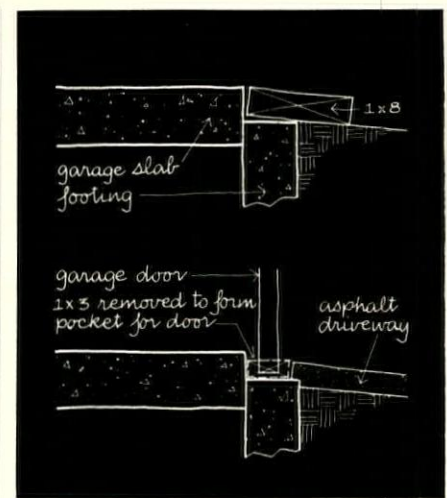 1x8
garage slab
footing
garage door
1x3 removed to form
pocket for door
asphalt
driveway